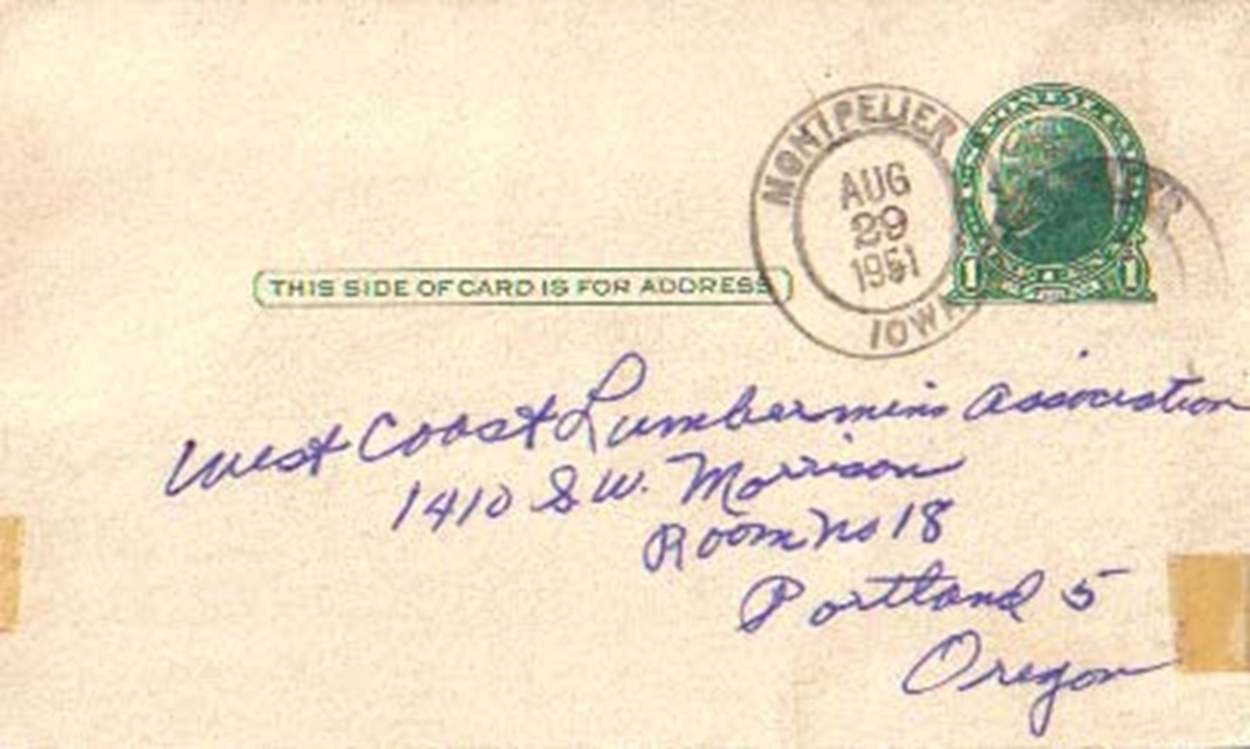 MONTPELIER
AUG
29
1951
IOWA
1 1
THIS SIDE OF CARD IS FOR ADDRESS
West Coast Lumbermins Association
1410 S.W. Morrison
Room No 18
Portland 5
Oregon